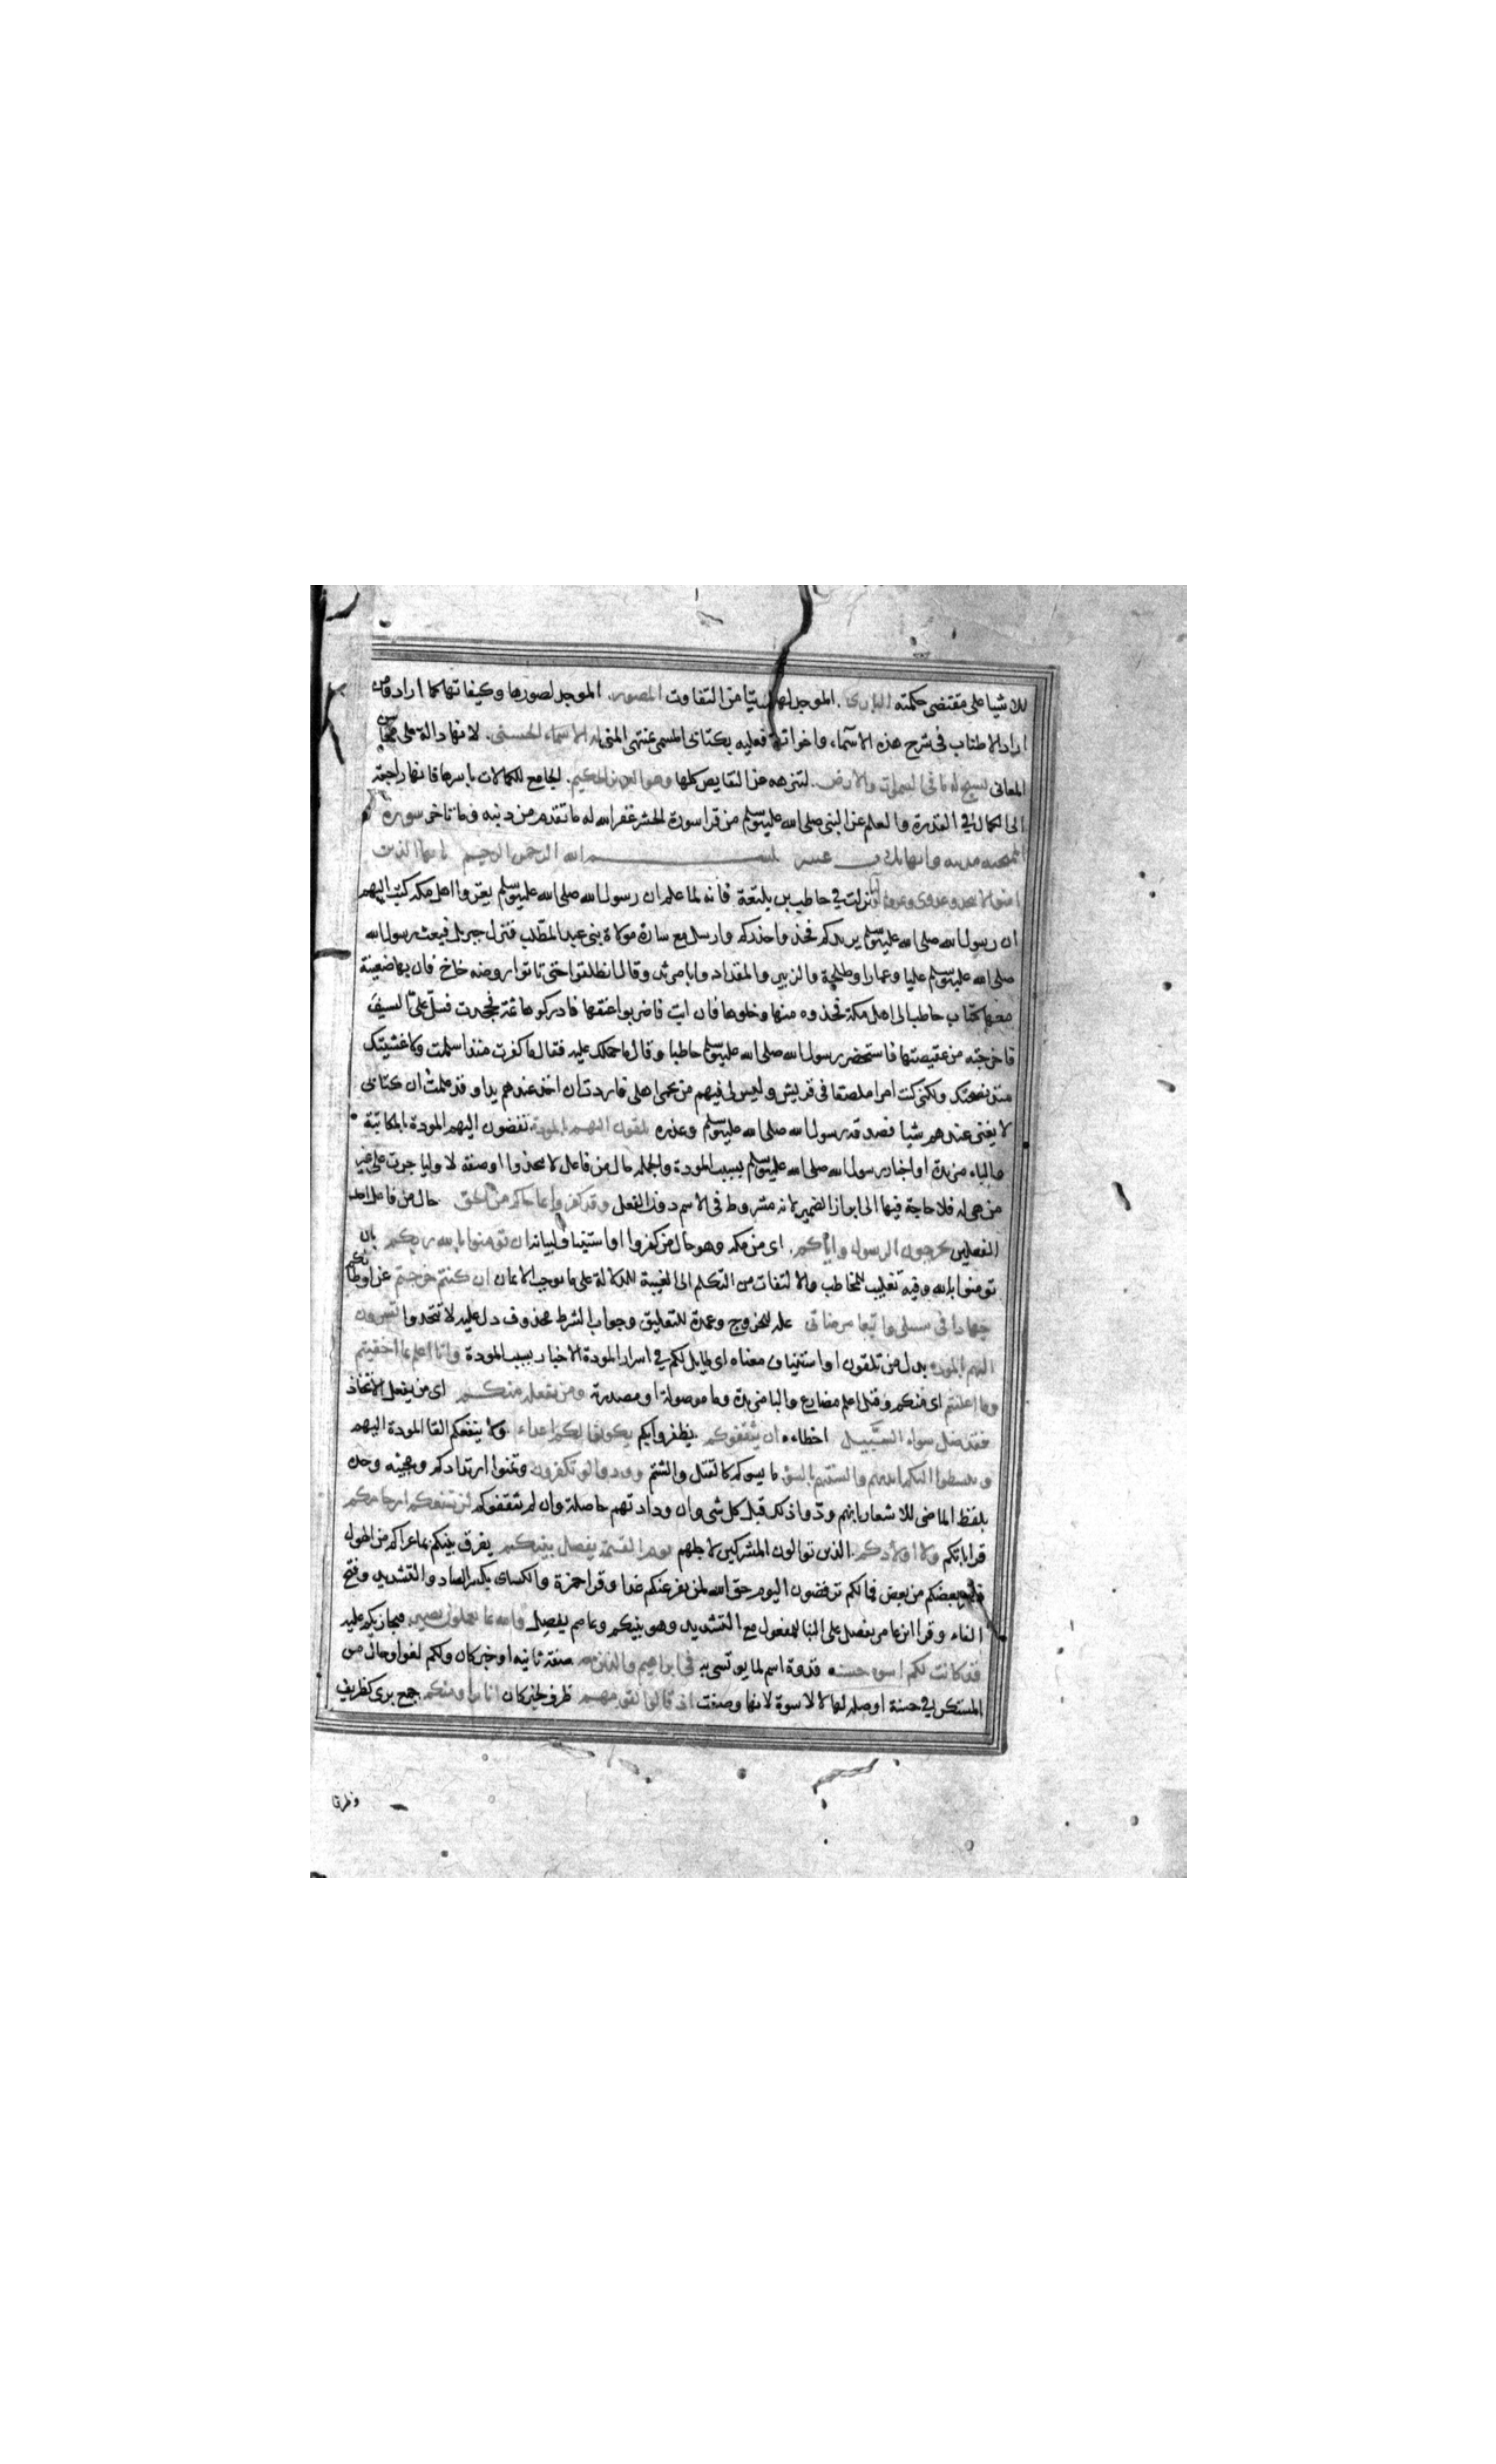 للاشيا على مقتضى حكمته البارى الموجد لها بريا من التفاوت المصور الموجد لصورها وكيفياتها كما اراد ومن
اراد الاطناب فى شرح هذه الاسماء واخواتها فعليه بكتابى المسمى بمنتهى المنى له الاسماء الحسنى لانها دالة على محاسن
المعانى يسبح له ما فى السموات والارض لتنزهه عن النقايص كلها وهو العزيز الحكيم الجامع للكمالات باسرها فانها راجعة
الى الكمال فى القدرة والعلم عن النبى صلى الله عليه وسلم من قرا سورة الحشر غفر الله له ما تقدم من ذنبه وما تاخر سورة
الممتحنه مدنيه وايها ثلث عشر بسم الله الرحمن الرحيم يا ايها الذين
امنوا لا تتخذوا عدوى وعدوكم اوليا نزلت فى حاطب بن بلتعة فانه لما علم ان رسول الله صلى الله عليه وسلم يغزوا اهل مكه كتب اليهم
ان رسول الله صلى الله عليه وسلم يريدكم فخذوا حذركم وارسل مع سارة مولاة بنى عبد المطلب فنزل جبريل فبعث رسول الله
صلى الله عليه وسلم عليا وعمارا وطلحة والزبير والمقداد وابا مرثد وقال انطلقوا حتى تاتوا روضه خاخ فان بها ضعينة
معها كتاب حاطب الى اهل مكة فخذوه منها وخلوها فان ابت فاضربوا عنقها فادركوها ثمة فجحدت فسل على السيف
فاخرجته من عقيصتها فاستحضر رسول الله صلى الله عليه وسلم حاطبا وقال ما حملك عليه فقال ما كفرت منذ اسلمت ولا غششتك
منذ نصحتك ولكنى كنت امرا ملصقا فى قريش وليس لى فيهم من يحمى اهلى فاردت ان اخذ عندهم يدا وقد علمت ان كتابى
لا يغنى عندهم شيا فصدقه رسول الله صلى الله عليه وسلم وعذره تلقون اليهم بالمودة تفضون اليهم المودة بالمكاتبة
والباء مزيدة او اخبار رسول الله صلى الله عليه وسلم بسبب المودة والجمله حال من فاعل لا تتخذوا او صفة لاوليا جرت على غير
من هى له فلا حاجة فيها الى ابراز الضمير لانه مشروط فى الاسم دون الفعل وقد كفروا بما جاكم من الحق حال من فاعل احد
الفعلين يخرجون الرسول واياكم اى من مكه وهو حال من كفروا او استيناف لبيانه ان تومنوا بالله ربكم بان
تومنوا بالله وفيه تغليب للمخاطب والالتفات من التكلم الى الغيبة للدلالة على ما يوجب الايمان ان كنتم خرجتم عن اوطانكم
جهادا فى سبيلى وابتغا مرضاتى علة للخروج وعمدة للتعليق وجواب الشرط محذوف دل عليه لا تتخذوا تسرون
اليهم بالمودة بدل من تلقون او استيناف معناه اى طايل لكم فى اسرار المودة الاخبار بسبب المودة وانا اعلم بما اخفيتم
وما اعلنتم اى منكم وقيل اعلم مضارع والبا مزيدة وما موصولة او مصدرية ومن يفعله منكم اى من يفعل الاتخاذ
فقد ضل سواء السبيل اخطاءه ان يثقفوكم يظفروا بكم يكونوا لكم اعداء ولا ينفعكم القا المودة اليهم
ويبسطوا اليكم ايديهم والسنتهم بالسؤ ما يسوكم كالقتل والشتم وودوا لو تكفرون وتمنوا ارتدادكم ومجيئه وحده
بلفظ الماضى للاشعار بانهم ودوا ذلك قبل كل شى وان ودادتهم حاصلة وان لم يثقفوكم لن تنفعكم ارحامكم
قراباتكم ولا اولادكم الذين توالون المشركين لاجلهم يوم القيمة يفصل بينكم يفرق بينكم بما عراكم من الهول
بعضكم من بعض فما لكم ترفضون اليوم حق الله لمن يفر عنكم غدا وقرا حمزة والكساى بكسر الصاد والتشديد وفتح
الفاء وقرا ابن عامر يفصل على البنا للمفعول مع التشديد وهو بينكم وعاصم يفصل والله بما تعملون بصير فيجازيكم عليه
قد كانت لكم اسوه حسنه قدوة اسم لما يوتسى به فى ابراهيم والذين معه صفة ثانيه او خبر كان ولكم لغو او حال من
المستكن فى حسنة او صله لها لا لاسوة لانها وصفت اذ قالوا لقومهم ظرف لخبر كان انا براو منكم جمع برى كظريف
وظرفا